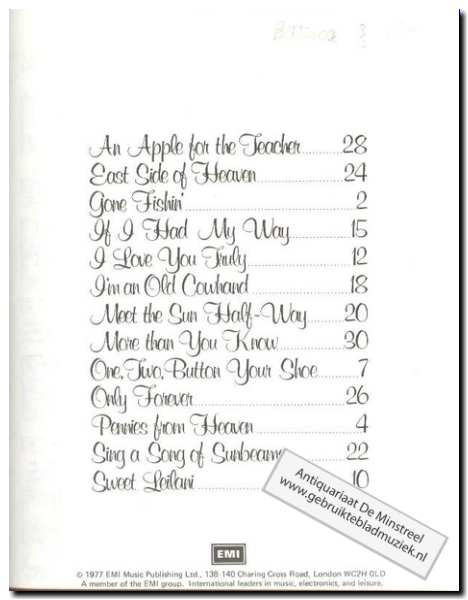 An Apple for the Teacher 28
East Side of Heaven 24
Gone Fishin' 2
If I Had My Way 15
I Love You Truly 12
I'm an Old Cowhand 18
Meet the Sun Half-Way 20
More than You Know 30
One, Two, Button Your Shoe 7
Only Forever 26
Pennies from Heaven 4
Sing a Song of Sunbeams 22
Sweet Leilani 10
Antiquariaat De Minstreel
www.gebruiktebladmuziek.nl
EMI
© 1977 EMI Music Publishing Ltd., 138-140 Charing Cross Road, London WC2H 0LD
A member of the EMI group. International leaders in music, electronics, and leisure.